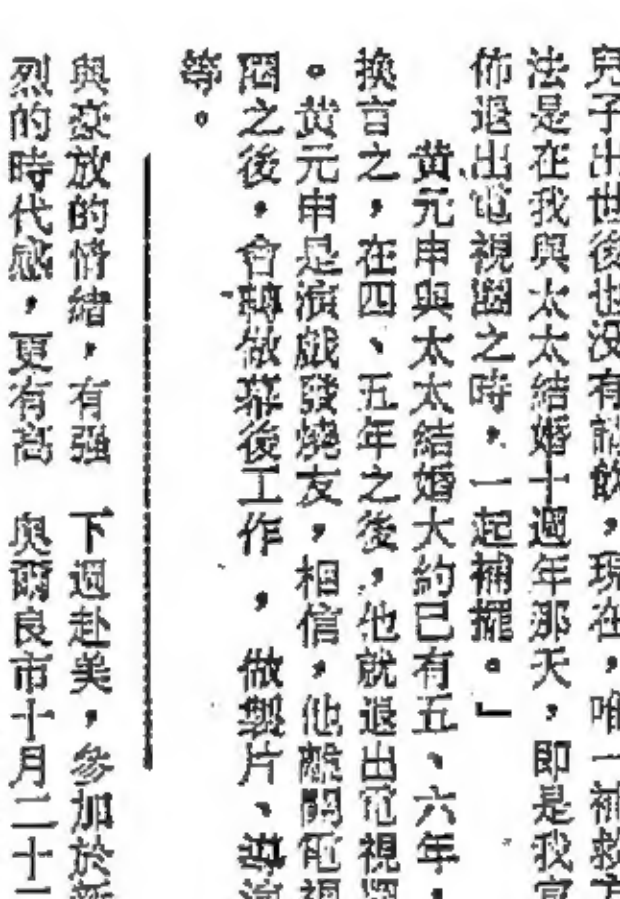 兒子出世後也没有請飲，現在，唯一補救方
法是在我與太太結婚十週年那天，即是我宣
佈退出電視圈之時，一起補擺。」
黄元申與太太結婚大約已有五、六年，
換言之，在四、五年之後，他就退出電視圈
。黄元申是演戲發燒友，相信，他離開電視
圈之後，會轉做幕後工作，做製片、導演
等。
與豪放的情緒，有强
烈的時代感，更有高
下週赴美，參加於新
奥爾良市十月二十二